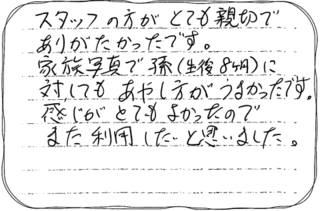 スタッフの方がとても親切で
ありがたかったです。
家族写真で孫(生後8ヶ月)に
対してもあやし方がうまかったです。
感じがとてもよかったので
また利用したいと思いました。